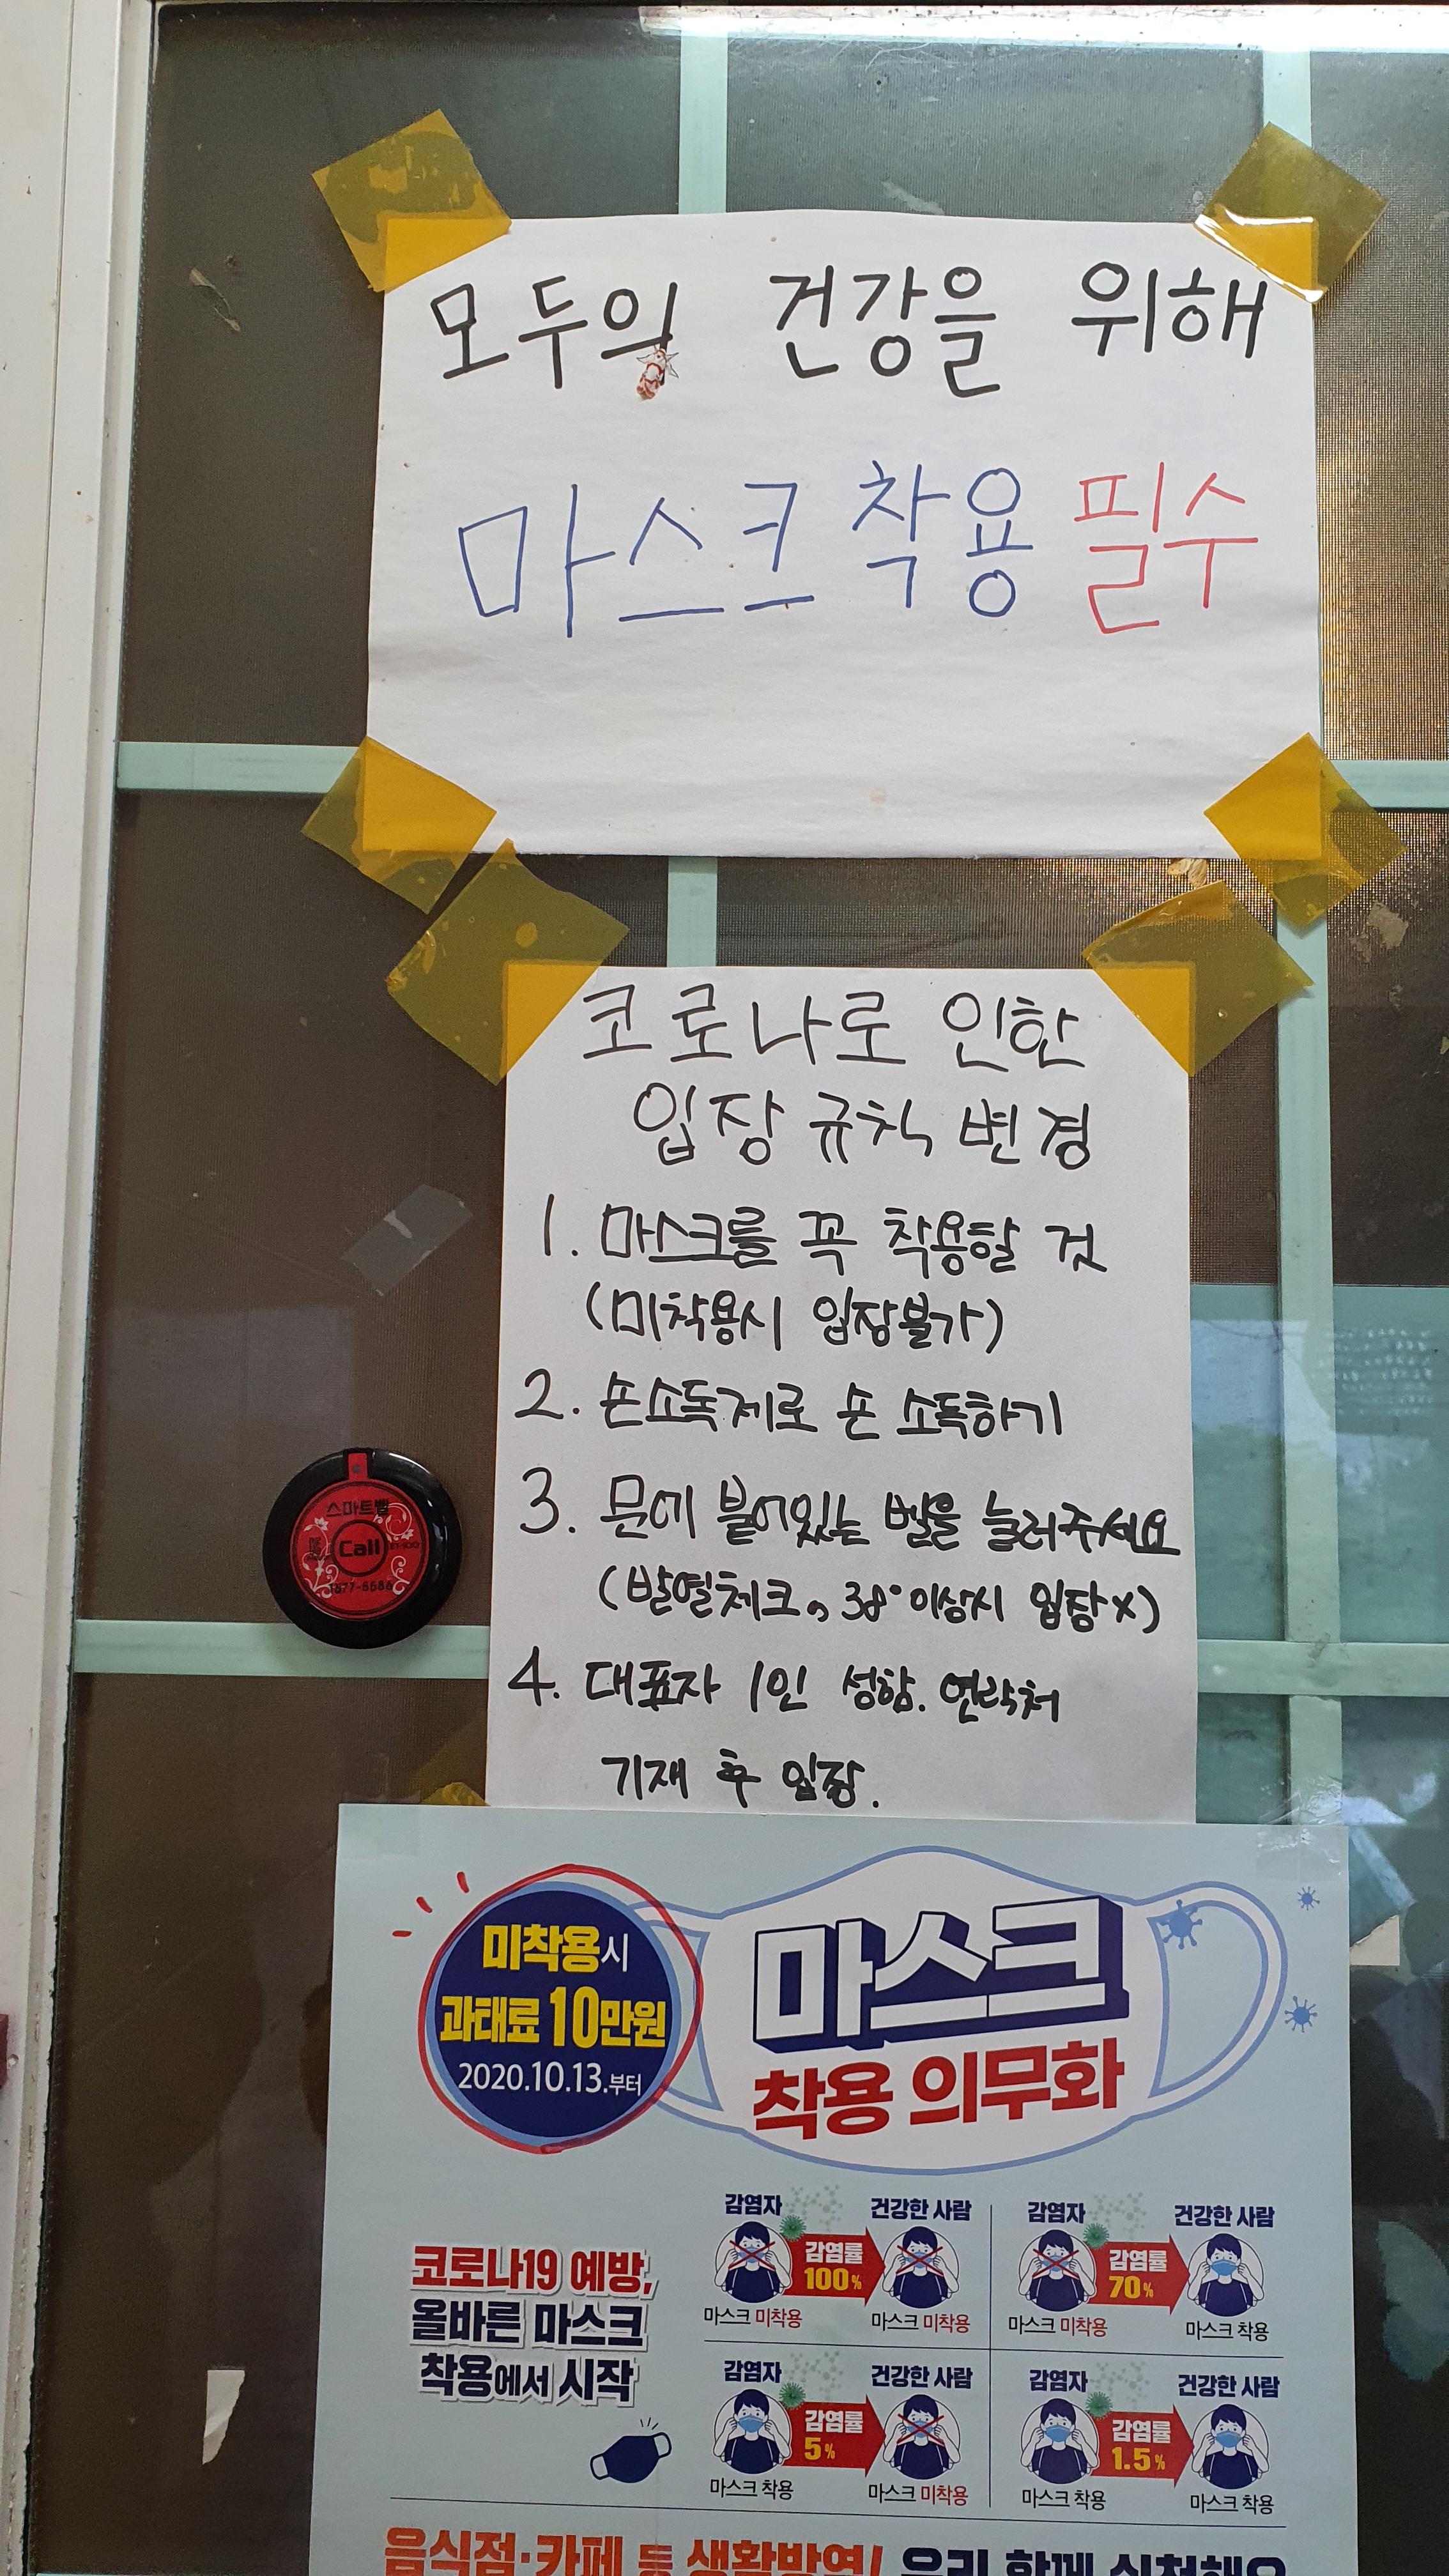 모두의 건강을 위해
마스크 착용 필수
코로나로 인한
입장 규칙 변경
1. 마스크를 꼭 착용할 것
(미착용시 입장불가)
2. 손소독제로 손 소독하기
3. 문에 붙어있는 벨을 눌러주세요
(발열체크. 38° 이상시 입장X)
4. 대표자 1인 성함. 연락처
기재 후 입장.
스마트벨
Call
1577-5586
미착용시
과태료 10만원
2020.10.13.부터
마스크
착용 의무화
코로나19 예방,
올바른 마스크
착용에서 시작
감염자 건강한 사람
감염률
100%
마스크 미착용 마스크 미착용
감염자 건강한 사람
감염률
70%
마스크 미착용 마스크 착용
감염자 건강한 사람
감염률
5%
마스크 착용 마스크 미착용
감염자 건강한 사람
감염률
1.5%
마스크 착용 마스크 착용
음식점·카페 등 생활방역! 우리 함께 실천해요